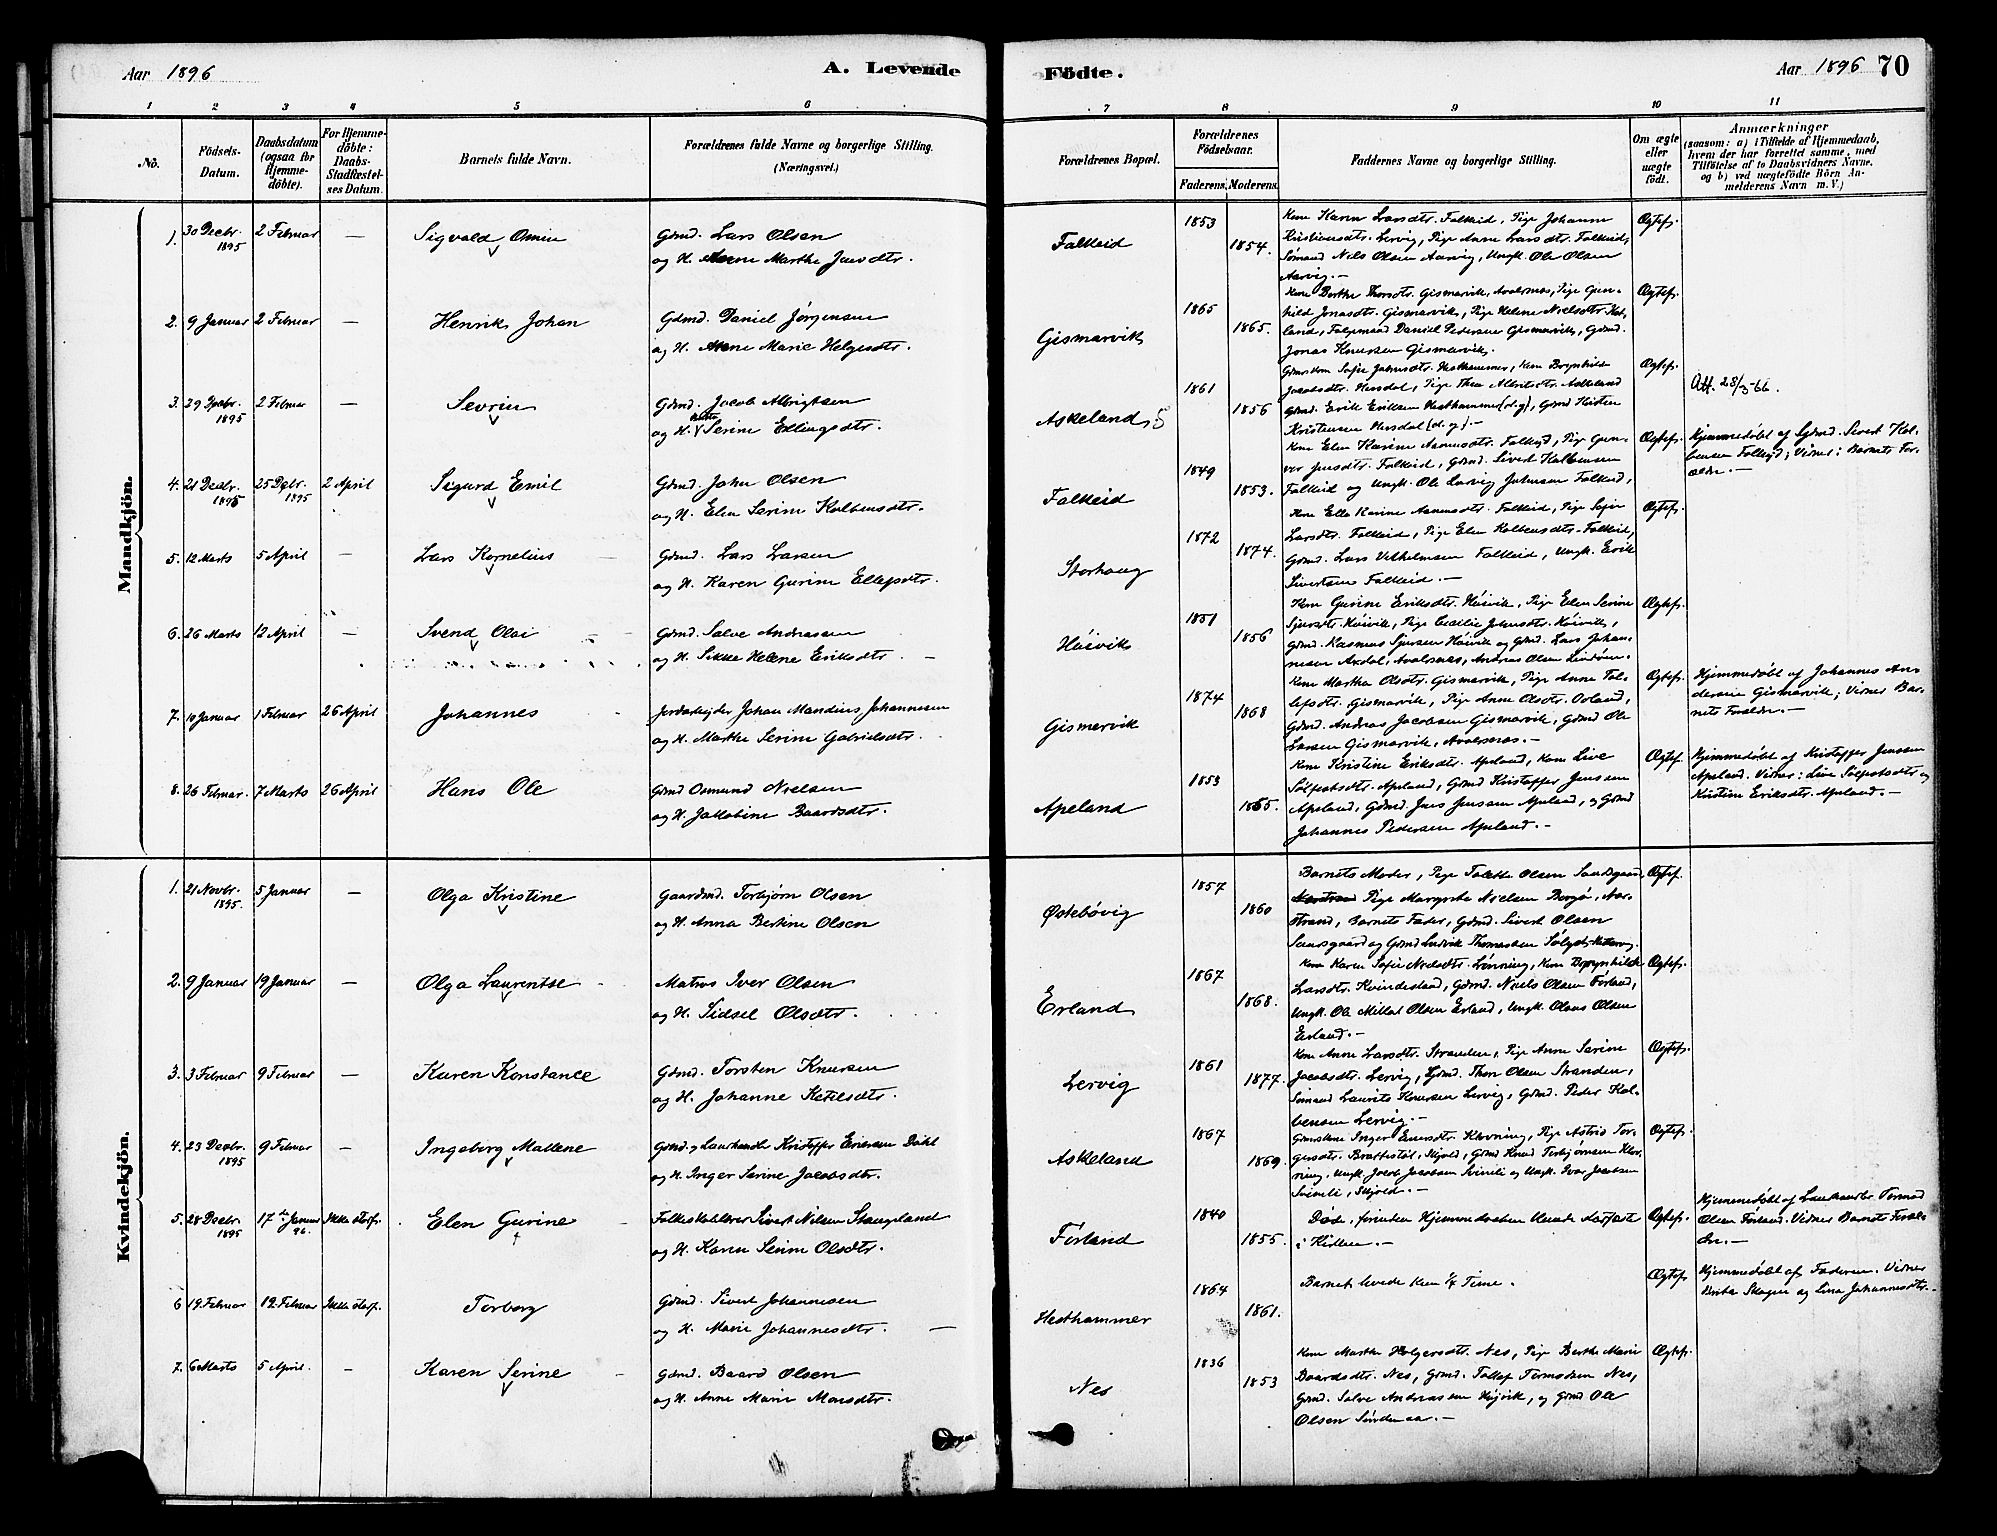 Aar 1896
A. Levende
Födte.
Aar 1896 70
1 2 3 4 5 6 7 8 9 10 11
No.
Födsels-
Datum.
Daabsdatum
(ogsaa for
Hjemme-
döbte).
For Hjemme-
döbte:
Daabs-
Stadfæstel-
ses Datum.
Barnets fulde Navn.
Forældrenes fulde Navne og borgerlige Stilling.
(Næringsvei.)
Forældrenes Bopæl.
Forældrenes
Födselsaar.
Faderens. Moderens.
Faddernes Navne og borgerlige Stilling.
Om ægte
eller
uægte
födt.
Anmærkninger
(saasom: a) i Tilfælde af Hjemmedaab,
hvem der har forrettet samme, med
Tilföielse af to Daabsvidners Navne,
og b) ved uægtefödte Börn An-
melderens Navn m. V.)
Mandkjön.
1. 30 Decbr. 1895 2 Februar — Sigvald Omin
Gdmd. Lars Olsen
og H. Anne Marthe Jensdtr.
Falkeid 1853 1854.
Kone Karen Larsdtr. Falkeid, Pige Johanne
Kristiansdtr. Lervig, Pige Anne Larsdtr. Falkeid,
Sømand Nils Olsen Aarvig, Ungk. Ole Olsen
Aarvig.—
Ægtef.
2. 9 Januar 2 Februar — Henrik Johan
Gdmd. Daniel Jørgensen
og H. Anne Marie Helgesdtr.
Gismarvik 1865 1865.
Kone Berthe Thorsdtr. Gismarvik, Avalsnes, Pige Gun-
hild Jonasdtr. Gismarvik, Pige Helene Nielsdtr.
land, Daniel Pedersen Gismarvik, Gdmd.
Jonas Knutsen Gismarvik.
Ægtef.
3. 29 1895 2 Februar — Sevrin
Gdmd. Jacob Albrigtsen
og H. Serine Ellingsdtr.
Askeland 5 1861 1856
Sofie Hesthammer, Kone Brynhilde
Jacobsdtr. Hesdal, Pige Thea Askeland
Gdmd. Erik Eriksen Hesthammer (d.y), Gdmd
Kristensen Hesdal (d.y).—
Ægtef.
Att. 28/3-66.
4. 21 Decbr. 1895 25 Dcbr. 1895 2 April Sigurd Emil
Gdmd. John Olsen
og H. Elen Serine Kolbensdtr.
Falkeid 1849 1853.
Kone Elen Karine Pige Gun-
vor Jensdtr. Falkeid, Gdmd. Sivert Kolbensen
Falkeid og Ungk. Ole Johnsen Falkeid,
Ægtef.
Hjemmedøbt af Gdmd. Sivert Kol-
bensen Vidner: Barnets For-
ældre.—
5. 12 Marts 5 April — Lars Kornelius
Gdmd. Lars Larsen
og H. Karen Gurine Ellefsdtr.
Storhaug 1872 1874.
Kone Karine Falkeid, Pige Sofie
Larsdtr. Falkeid, Pige Elen Kolbensdtr. Falkeid,
Gdmd. Lars Vilhelmsen Falkeid, Ungk. Erik
Sivertsen Falkeid.—
Ægtef.
6. 26 Marts 12 April — Svend Olai
Gdmd. Salve Andreassen
og H. Sikke Helene Eriksdtr.—
Høivik 1851 1856
Kone Gurine Eriksdtr. Høivik, Pige Elen Serine
Høivik, Pige Cecilie Johnsdtr. Høivik,
Gdmd. Rasmus Sjursen Høivik og Gdmd. Lars Johan-
nesen Axdal, Avalsnes, Andreas Olsen
Ægtef.
7. 10 Januar 1 Februar 26 April Johannes
Jordarbejder Johan Mandius Johannesen
og H. Marthe Serine Gabrielsdtr.
Gismervik 1874 1868
Kone Martha Olsdtr. Gismarvik, Pige Anne Tol-
lefsdtr. Gismarvik, Pige Anne Olsdtr.
Gdmd. Andreas Jacobsen Gismarvik, Gdmd Ole
Larsen Gismarvik, Avalsnes.—
Ægtef.
Hjemmedøbt af Johannes An-
dersen Gismarvik; Vidner Bar-
nets Forældre.—
8. 26 Februar. 7 Marts 26 April Hans Ole
Gdmd Osmund Nielsen
og H. Jakobine Baardsdtr.
Apeland 1853 1865.
Kone Kristine Eriksdtr. Apeland, Kone Live
Sølfestsdtr. Apeland, Gdmd Kristoffer Jensen
Apeland, Gdmd. Jens Jensen Apeland, og Gdmd
Johannes Pedersen Apeland.—
Ægtef
Hjemmedøbt af Kristoffer Jensen
Apeland. Vidner: Live Sølfestsdtr og
Kristine Eriksdtr. Apeland.—
Kvindekjön.
1. 21 Novbr. 1895. 5 Januar — Olga Kristine
Gaardmd. Torbjørn Olsen
og H. Anna Bertine Olsen
Østebövig 1857 1860
Barnets Moder, Pige Olsen
Pige Margrete Nielsen Borgø, Nar-
strand, Barnets Fader, Gdmd. Sivert Olsen
og Gdmd Ludvik Thomassen
Ægtef.
2. 9 Januar 19 Januar — Olga Laurentse
Matros Iver Olsen
og H. Sidsel Olsdtr.
Erland 1867 1868.
Kone Karen Sofie Nielsdtr. Lønning, Kone Brynhilde
Larsdtr. Kvindesland, Gdmd. Niels Olsen Førland,
Ungk. Ole Olsen Erland, Ungk. Olaus Olsen
Erland.—
Ægtef.
3. 3 Februar 9 Februar — Karen Konstance
Gdmd. Torsten Knutsen
og H. Johanne Ketilsdtr.
Lervig 1861 1877.
Kone Anne Larsdtr. Stranden, Pige Anne Serine
Jacobsdtr. Lervig, Gdmd. Thor Olsen Stranden,
Sømand Laurits Knutsen Lervig, Gdmd. Peder Kol-
bensen Lervig.—
Ægtef.
4. 23 Decbr. 1895 9 Februar — Ingeborg Mallene
Gdmd. og Kristoffer Eriksen Dahl
og H. Inger Serine Jacobsdtr.
Askeland 1867 1869.
Inger Klovning, Pige Astrid Tor-
gersdtr. Skjold, Gdmd Knud Torbjørnsen Klov-
ning, Ungk. Jacob Jacobsen Svinli og Ungk. Ivar Jacobsen
Svinli, Skjold.—
Ægtef.
5. 28 Decbr. 1895 17de Januar 96. Ikke stadf. Elen Gurine †
Folkeskolelærer Sivert Nilsen Stangeland
og H. Karen Serine Olsdtr.
Førland 1840 1855.
Døde, forinden Hjemmedaaben kunde stadfæstes
i Kirken.—
Ægtef.
Hjemmedøbt af Tormod
Olsen Førland. Vidner Barnets Foræl-
dre.—
6 19. Februar 19. Februar Ikke stadf. Torborg
Gdmd. Sivert Johannesen
og H. Marie Johannesdtr.—
Hesthammer 1864 1861.
Barnet levede kun ½ Time.
Ægtef
Hjemmedøbt af Faderen. Vidner
Berta Skogen og Lina Johannesdtr.—
7. 6 Marts 5 April. — Karen Serine
Gdmd. Baard Olsen
og H. Anne Marie Monsdtr.
Nes 1836 1853
Kone Marthe Holgersdtr. Nes, Pige Berthe Marie
Baardsdtr. Nes, Gdmd. Tollef Nes,
Gdmd. Salve Andreassen Høivik, og Gdmd Ole
Olsen Søndenaa.—
Ægtef.